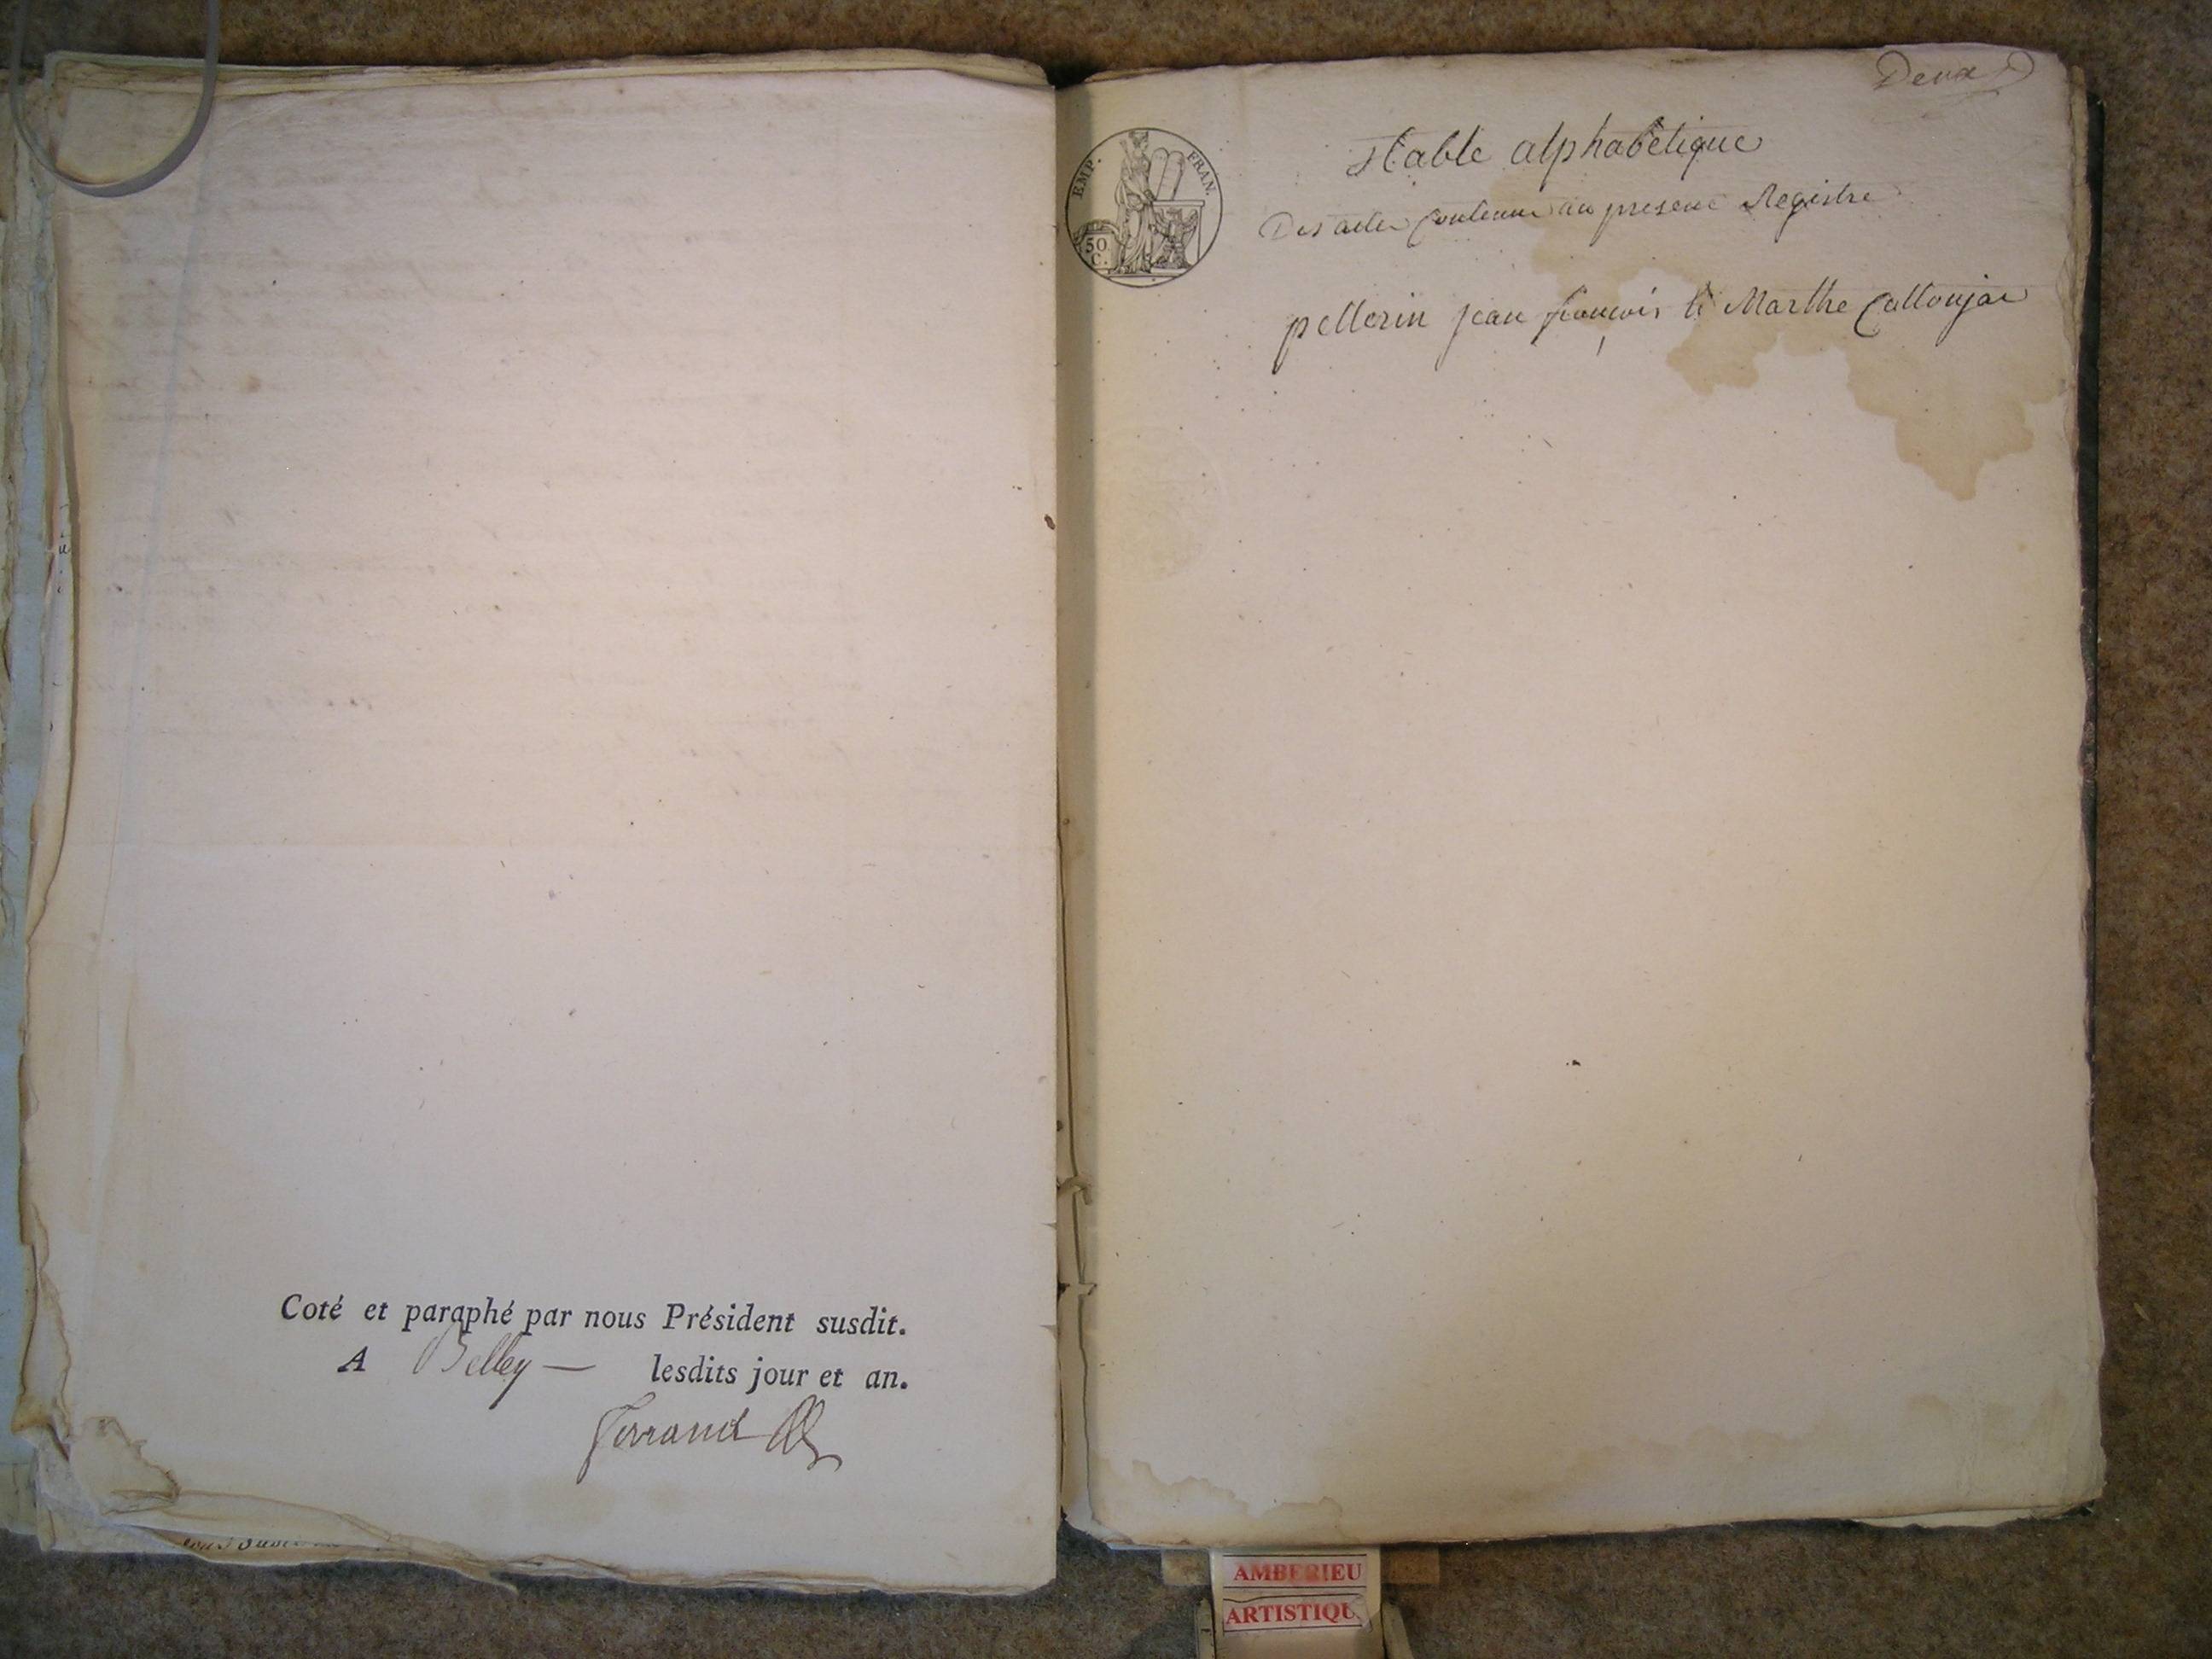 Coté et paraphé par nous Président susdit.
A Belley — lesdits jour et an.
Ferrand
Deux
EMP. FRAN.
50
C.
Table alphabétique
Des actes Contenu au present Registre
pellerin jean françois & Marthe
AMBERIEU
ARTISTIQU